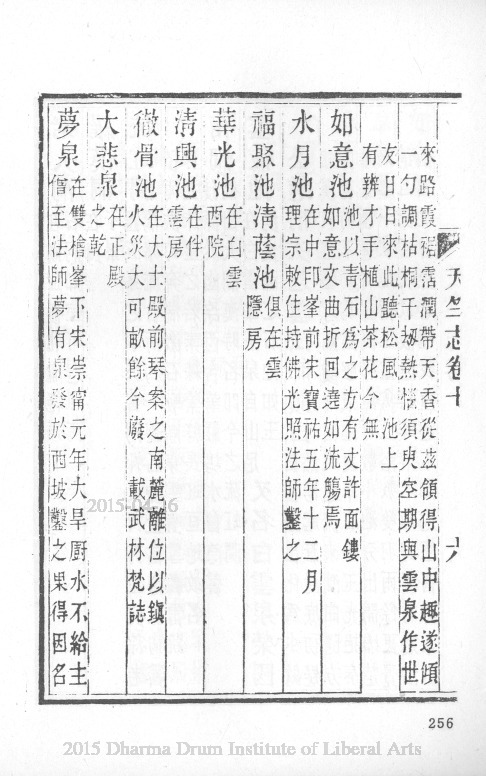 天竺志卷十 六
來路霞裾霑潤帶天香從茲領得山中趣遂頃
一勺調枯桐千刼熱惱須臾空期與雲泉作世
友日日來此聽松風 池上
有辨才手植山茶花今無
如意池 池以青石爲之方有丈許面鏤
如意文曲折回遶如流觴焉
水月池 在中印峯前宋寶祐五年十二月
理宗敕住持佛光照法師鑿之
福聚池清蔭池 俱在雲
隱房
華光池 在白雲
西院
清興池 在伴
雲房
徹骨池 在大士殿前琴案之南麓離位以鎮
火災大可畝餘今廢 載武林梵誌
大悲泉 在正殿
之乾
夢泉 在雙檜峯下宋崇甯元年大旱厨水不給主
僧至法師夢有泉發於西坡鑿之果得因名
256
2015-04-16
2015 Dharma Drum Institute of Liberal Arts